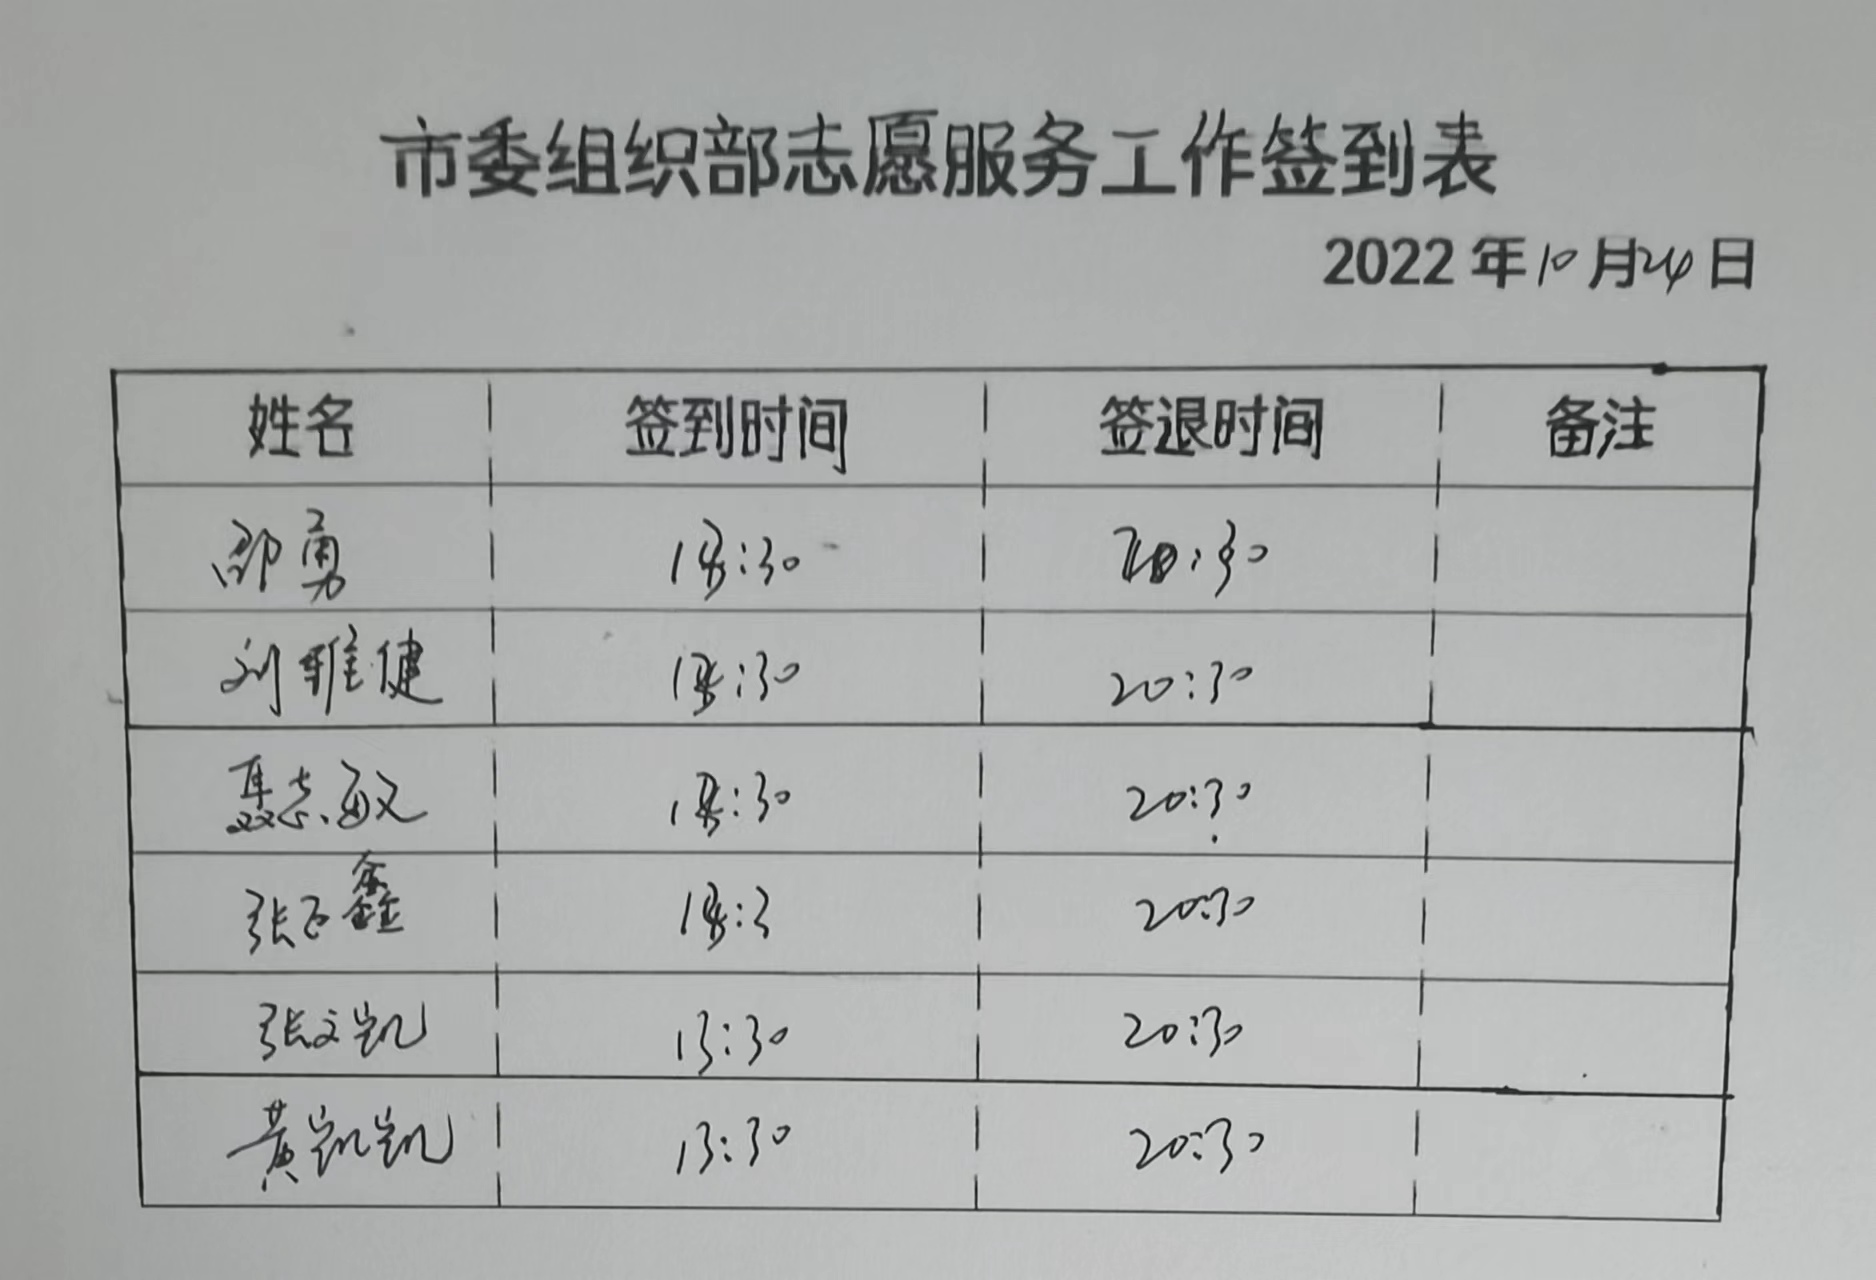 市委组织部志愿服务工作签到表
2022年10月24日
姓名 签到时间 签退时间 备注
邵勇 :30 20:30
刘雅健 :30 20:30
聂志敏 :30 20:30
张百鑫 :3 20:30
张文凯 13:30 20:30
黄凯凯 13:30 20:30